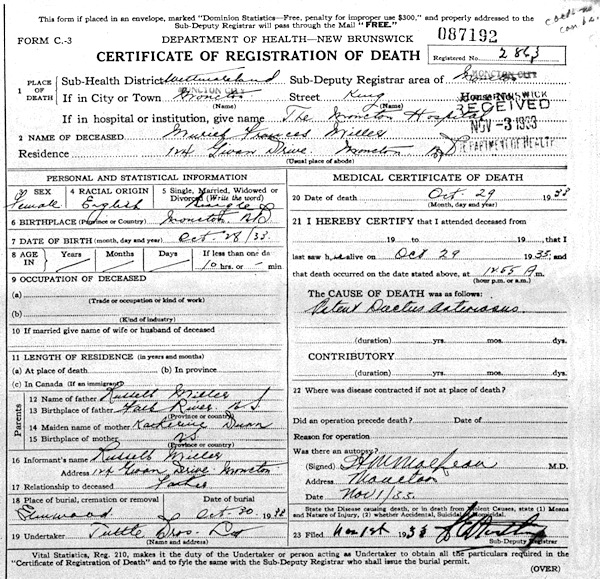 This form if placed in an envelope, marked "Dominion Statistics—Free, penalty for improper use $300," and properly addressed to the
Sub-Deputy Registrar will pass through the Mail "FREE."
FORM C.-3
DEPARTMENT OF HEALTH—NEW BRUNSWICK
087192
CERTIFICATE OF REGISTRATION OF DEATH
Registered No. 2863
1 PLACE OF DEATH Sub-Health District Westmorland Sub-Deputy Registrar area of MONCTON CITY
MONCTON CITY
If in City or Town Moncton Street King House No.
(Name) (Name)
RECEIVED
NOV - 3 1933
DEPARTMENT OF HEALTH
If in hospital or institution, give name The Moncton Hospital
2 NAME OF DECEASED Muriel Frances Miller
Residence 124 Drive. Moncton NB
(Usual place of abode)
PERSONAL AND STATISTICAL INFORMATION
3 SEX 4 RACIAL ORIGIN 5 Single, Married, Widowed or Divorced (Write the word)
Female English Single
6 BIRTHPLACE (Province or Country) Moncton NB
7 DATE OF BIRTH (month, day and year) Oct. 28/33.
8 AGE IN Years Months Days If less than one day
10 hrs. or - min
9 OCCUPATION OF DECEASED
(a)
(Trade or occupation or kind of work)
(b)
(Kind of industry)
10 If married give name of wife or husband of deceased
11 LENGTH OF RESIDENCE (in years and months)
(a) At place of death (b) In province
(c) In Canada (If an immigrant)
Parents
12 Name of father Russell Miller
13 Birthplace of father River NS
(Province or country)
14 Maiden name of mother Katherine
15 Birthplace of mother NS
(Province or country)
16 Informant's name Russell Miller
Address 124 Drive. Moncton
17 Relationship to deceased Father
18 Place of burial, cremation or removal Date of burial
Elmwood Oct. 30. 1933
19 Undertaker Tuttle Bros. Ltd
(Name and address)
MEDICAL CERTIFICATE OF DEATH
20 Date of death Oct. 29 1933
(Month, day and year)
21 I HEREBY CERTIFY that I attended deceased from
19 to 19, that I
last saw h alive on Oct 29 1933, and
that death occurred on the date stated above, at m.
(hour p.m. or a.m.)
The CAUSE OF DEATH was as follows:
Patent Ductus Arteriosus.
(duration) yrs. mos. dys.
CONTRIBUTORY
(duration) yrs. mos. dys.
22 Where was disease contracted if not at place of death?
Did an operation precede death? Date of
Reason for operation
Was there an autopsy?
(Signed) M.D.
Address Moncton
Date Nov 1/33.
State the Disease causing death, or in death from Violent Causes, state (1) Means
and Nature of Injury, (2) whether Accidental, Suicidal or Homicidal.
23 Filed Nov 1st 1933
Sub-Deputy Registrar
Vital Statistics, Reg. 210, makes it the duty of the Undertaker or person acting as Undertaker to obtain all the particulars required in the
"Certificate of Registration of Death" and to fyle the same with the Sub-Deputy Registrar who shall issue the burial permit.
(OVER)